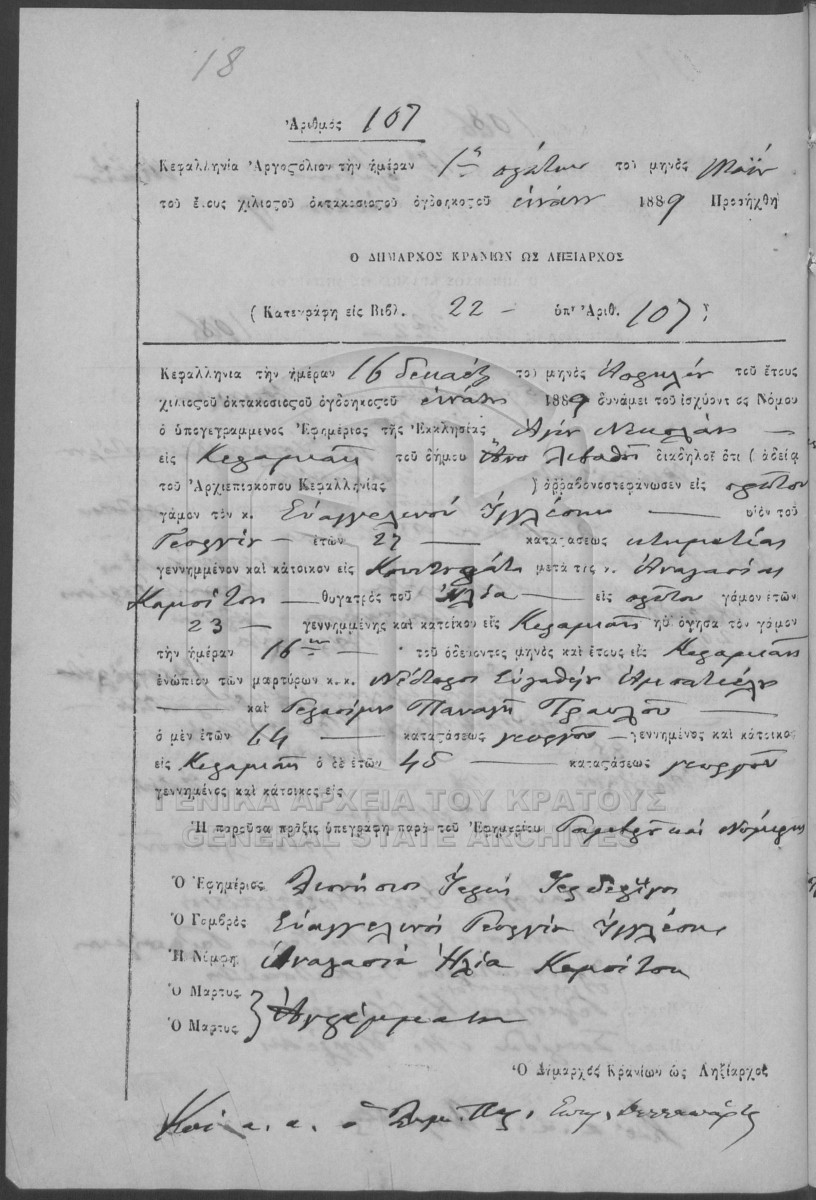 18
Ἀριθμός 107
Κεφαλληνία Ἀργοστόλιον τὴν ἡμέραν 1η πρώτην τοῦ μηνὸς Μαΐου
τοῦ ἔτους χιλιοστοῦ ὀκτακοσιοστοῦ ὀγδοηκοστοῦ ἐννάτου 1889 Προσήχθη
Ο ΔΗΜΑΡΧΟΣ ΚΡΑΝΙΩΝ ΩΣ ΛΗΞΙΑΡΧΟΣ
(Κατεγράφη εἰς Βιβλ. 22 — ὑπ' Ἀριθ. 107)
Κεφαλληνία τὴν ἡμέραν 16 δεκαέξ τοῦ μηνὸς Ἀπριλίου τοῦ ἔτους
χιλιοστοῦ ὀκτακοσιοστοῦ ὀγδοηκοστοῦ ἐννάτου 1889 δυνάμει τοῦ ἰσχύοντος Νόμου
ὁ ὑπογεγραμμένος Ἐφημέριος τῆς Ἐκκλησίας Ἁγίου Νικολάου —
εἰς τοῦ δήμου Ἄνω Λειβαθοῦς διαδηλοῖ ὅτι (ἀδείᾳ
τοῦ Ἀρχιεπισκόπου Κεφαλληνίας ) ἀρραβονοστεφάνωσεν εἰς πρῶτον
γάμον τὸν κ. Εὐαγγελινὸν Ἰγγλέσην — υἱὸν τοῦ
Γεωργίου — ἐτῶν 27 — καταστάσεως κτηματίας
γεννημμένον καὶ κάτοικον εἰς μετὰ τῆς κ. Ἀναστασίας
— θυγατρὸς τοῦ Ἠλία — εἰς πρῶτον γάμον ἐτῶν
23 — γεννημμένης καὶ κατοίκου εἰς ηὐλόγησα τὸν γάμον
τὴν ἡμέραν 16ην — τοῦ ὁδεύοντος μηνὸς καὶ ἔτους εἰς
ἐνώπιον τῶν μαρτύρων κ. κ.
— καὶ Γερασίμου Παναγῆ Τραυλοῦ —
ὁ μὲν ἐτῶν 64 — καταστάσεως γεωργοῦ — γεννημένος καὶ κάτοικος
εἰς ὁ δὲ ἐτῶν 45 — καταστάσεως γεωργοῦ
γεννημένος καὶ κάτοικος εἰς
ΓΕΝΙΚΑ ΑΡΧΕΙΑ ΤΟΥ ΚΡΑΤΟΥΣ
Ἡ παροῦσα πρᾶξις ὑπεγράφη παρὰ τοῦ Ἐφημερίου Γαμβροῦ καὶ Νύμφης
GENERAL STATE ARCHIVES
Ὁ Ἐφημέριος Διονύσιος Ἱερεὺς
Ὁ Γαμβρὸς Εὐαγγελινὸς Γεωργίου Ἰγγλέσης
Ἡ Νύμφη Ἀναστασία Ἠλία
Ὁ Μάρτυς
Ὁ Μάρτυς } Ἀγράμματοι
Ὁ Δήμαρχος Κρανίων ὡς Ληξίαρχος